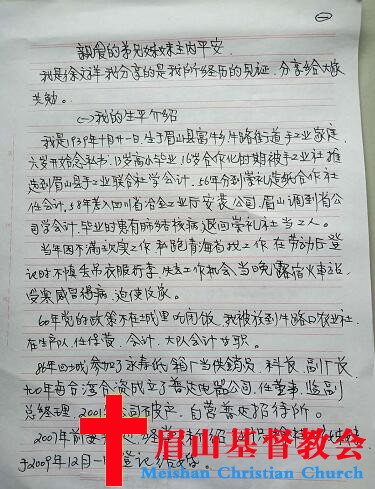 ㊀
亲爱的弟兄姊妹主内平安
我是徐文祥我分享的是我所经历的见证,分享给大家
共勉。
㈠我的生平介绍
我是1939年十月廿一日,生于眉山县富牛乡牛路街道手工业家庭,
六岁开始念私书,13岁高小毕业,16岁合作化时期被手工业社推
选到眉山县手工业联合社学会计。56年分到崇礼造纸合作社
任会计,58年考入四川省冶金工业厅安装公司,眉山调到省公
司学会计,毕业时患有肺结核病退回崇礼社当工人。
当年因不满这家工作私跑青海省找工作,在劳动厅登
记时不慎失吊衣服行李,失去工作机会,当晚露宿火车站,
受寒感冒得病,迫使反家。
60年党的政策不在城里吃闲饭,我被放到牛路口农业社
在生产队任保管,会计,大队会计等职。
86年回城参加了永寿纸箱厂当供销员,科长,副厂长,
九〇年与台湾合资成立了普达电器公司,任董事,监副
总经理,2001年公司破产,自营普达招待所。
2007年前妻
于2009年12月一
眉山基督教会
Meishan Christian Church